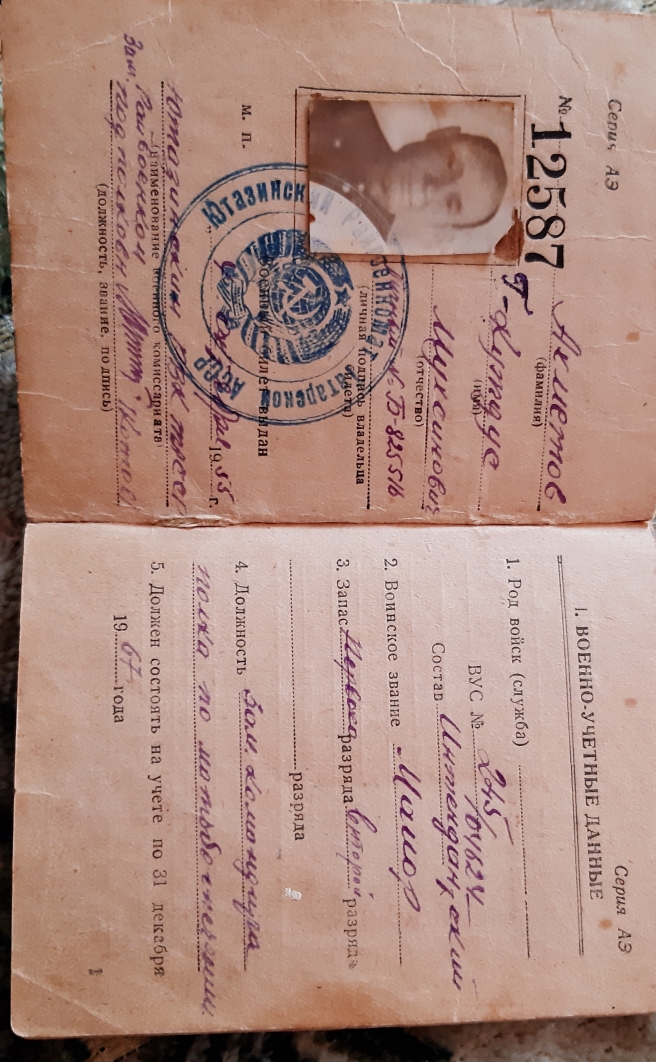 Серия АЭ
№ 12587
Ахметов
(фамилия)
Г-Кутдус
(имя)
Муксинович
(отчество)
№ Б-825516
(личная подпись владельца
билета)
Военный билет выдан
1955 г.
М. П.
Ютазинским РВК ТАССР
(наименование военного комиссариата)
Зам. Райвоенком
подполковн
(должность, звание, подпись)
Ютазинский Рай военкомат Татарской АССР
Серия АЭ
I. ВОЕННО-УЧЕТНЫЕ ДАННЫЕ
1. Род войск (служба)
ВУС № 245
Состав Интендантский
2. Воинское звание Майор
3. Запас Первого разряда Второй разряда
разряда
4. Должность Зам. командира
полка по матобеспечению.
5. Должен состоять на учете по 31 декабря
1967 года
1